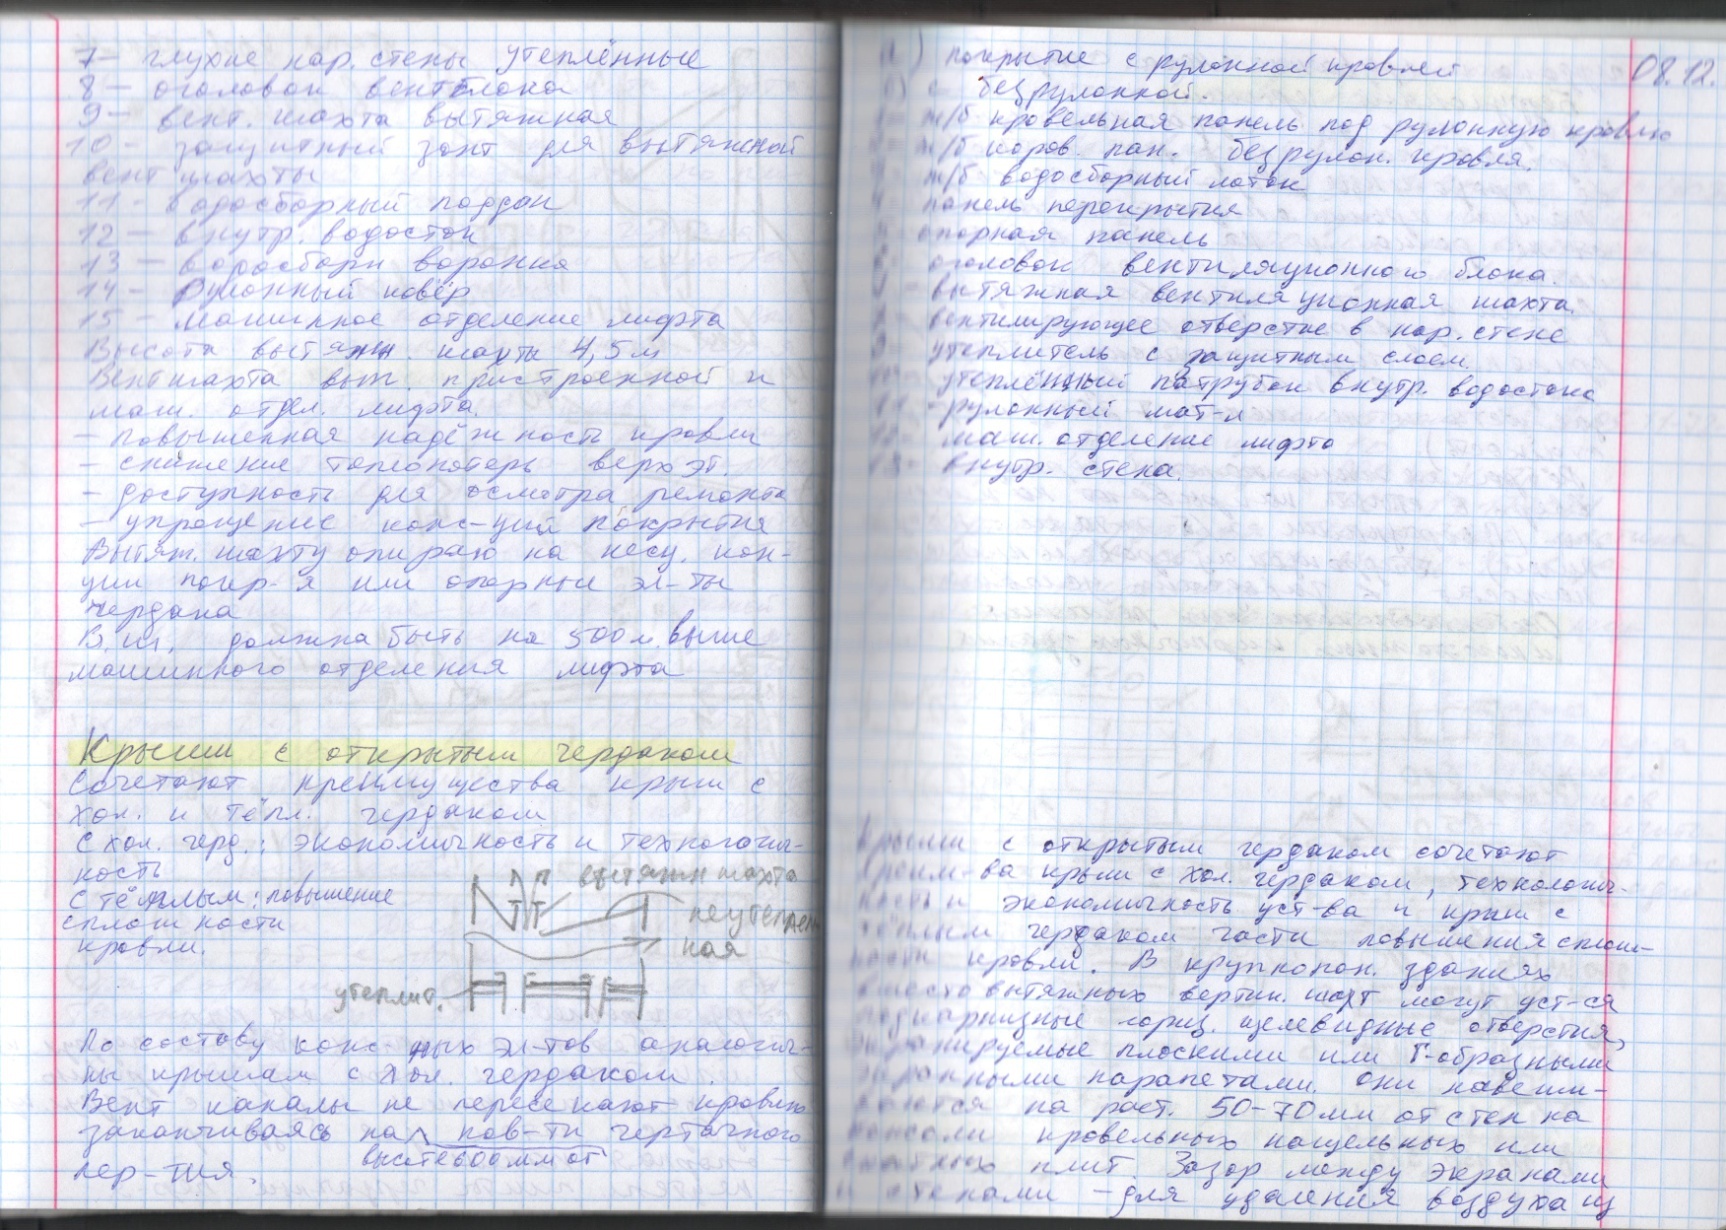 7 – глухие нар. стены утеплённые
8 – оголовок вентблока
9 – вент. шахта вытяжная
10 – защитный зонт для вытяжной
вент шахты
11 – водосборный поддон
12 – внутр. водосток
13 – водосборн воронка
14 – рулонный ковёр
15 – машинное отделение лифта
Высота вытяжн. шахты 4,5 м
Вентшахта выт. пристроенной к
маш. отдел. лифта.
– повышенная надёжность кровли
– снижение теплопотерь верх эт.
– доступность для осмотра ремонта
– упрощение конс-ций покрытия
Вытяж. шахту опираю на несу. кон-
ции покр-я или опорные эл-ты
чердака
В.ш. должна быть на 500 м. выше
машинного отделения лифта
Крыши с открытым чердаком
Сочетают преимущества крыш с
хол. и тёпл. чердаком
С хол. черд.: экономичность и технологич-
ность
С тёплым: повышение
сплошности
кровли.
вытяжн шахта
неутеплен
ная
утеплит.
По составу конс-ных эл-тов аналогич-
ны крышам с хол. чердаком.
Вент каналы не пересекают кровлю
заканчиваясь на пов-ти чердачного
высоте 600 мм от
пер-тия.
08.12.
а) покрытие с рулонной кровлей
с безрулонной.
ж/б кровельная панель под рулонную кровлю
ж/б кров. пан. безрулон. кровля.
ж/б водосборный лоток
панель перекрытия
опорная панель
оголовок вентиляционного блока.
вытяжная вентиляционная шахта.
вентилирующее отверстие в нар. стене
утеплитель с защитным слоем.
утеплённый патрубок внутр. водостока
рулонный мат-л
маш. отделение лифта
внутр. стена.
Крыши с открытым чердаком сочетают
преим-ва крыш с хол. чердаком, технологич-
ность и экономичность уст-ва и крыш с
тёплым чердаком части повышения сплош-
ности кровли. В крупнопан. зданиях
вместо вытяжных вертик. шахт могут уст-ся
подкарнизные гориз. щелевидные отверстия,
экранируемые плоскими или Г-образными
экранными парапетами. Они навеши-
ваются на раст. 50-70 мм от стен на
консоли кровельных нащельных или
плит. Зазор между экранами
и стенами – для удаления воздуха из